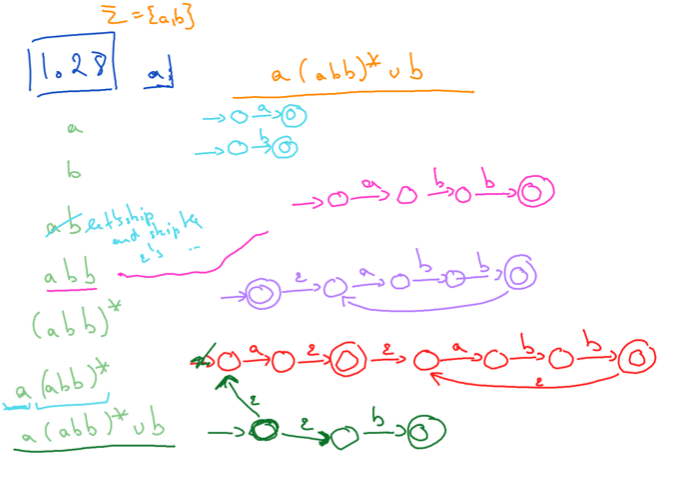 Σ = {a,b}
1.28 a)
a (abb)* ∪ b
a
b
a
b
ab let's skip
and skip the
ε's ...
a b b
abb
ε a b b
(abb)*
a ε ε a b b
ε
a (abb)*
ε
a (abb)* ∪ b
ε b